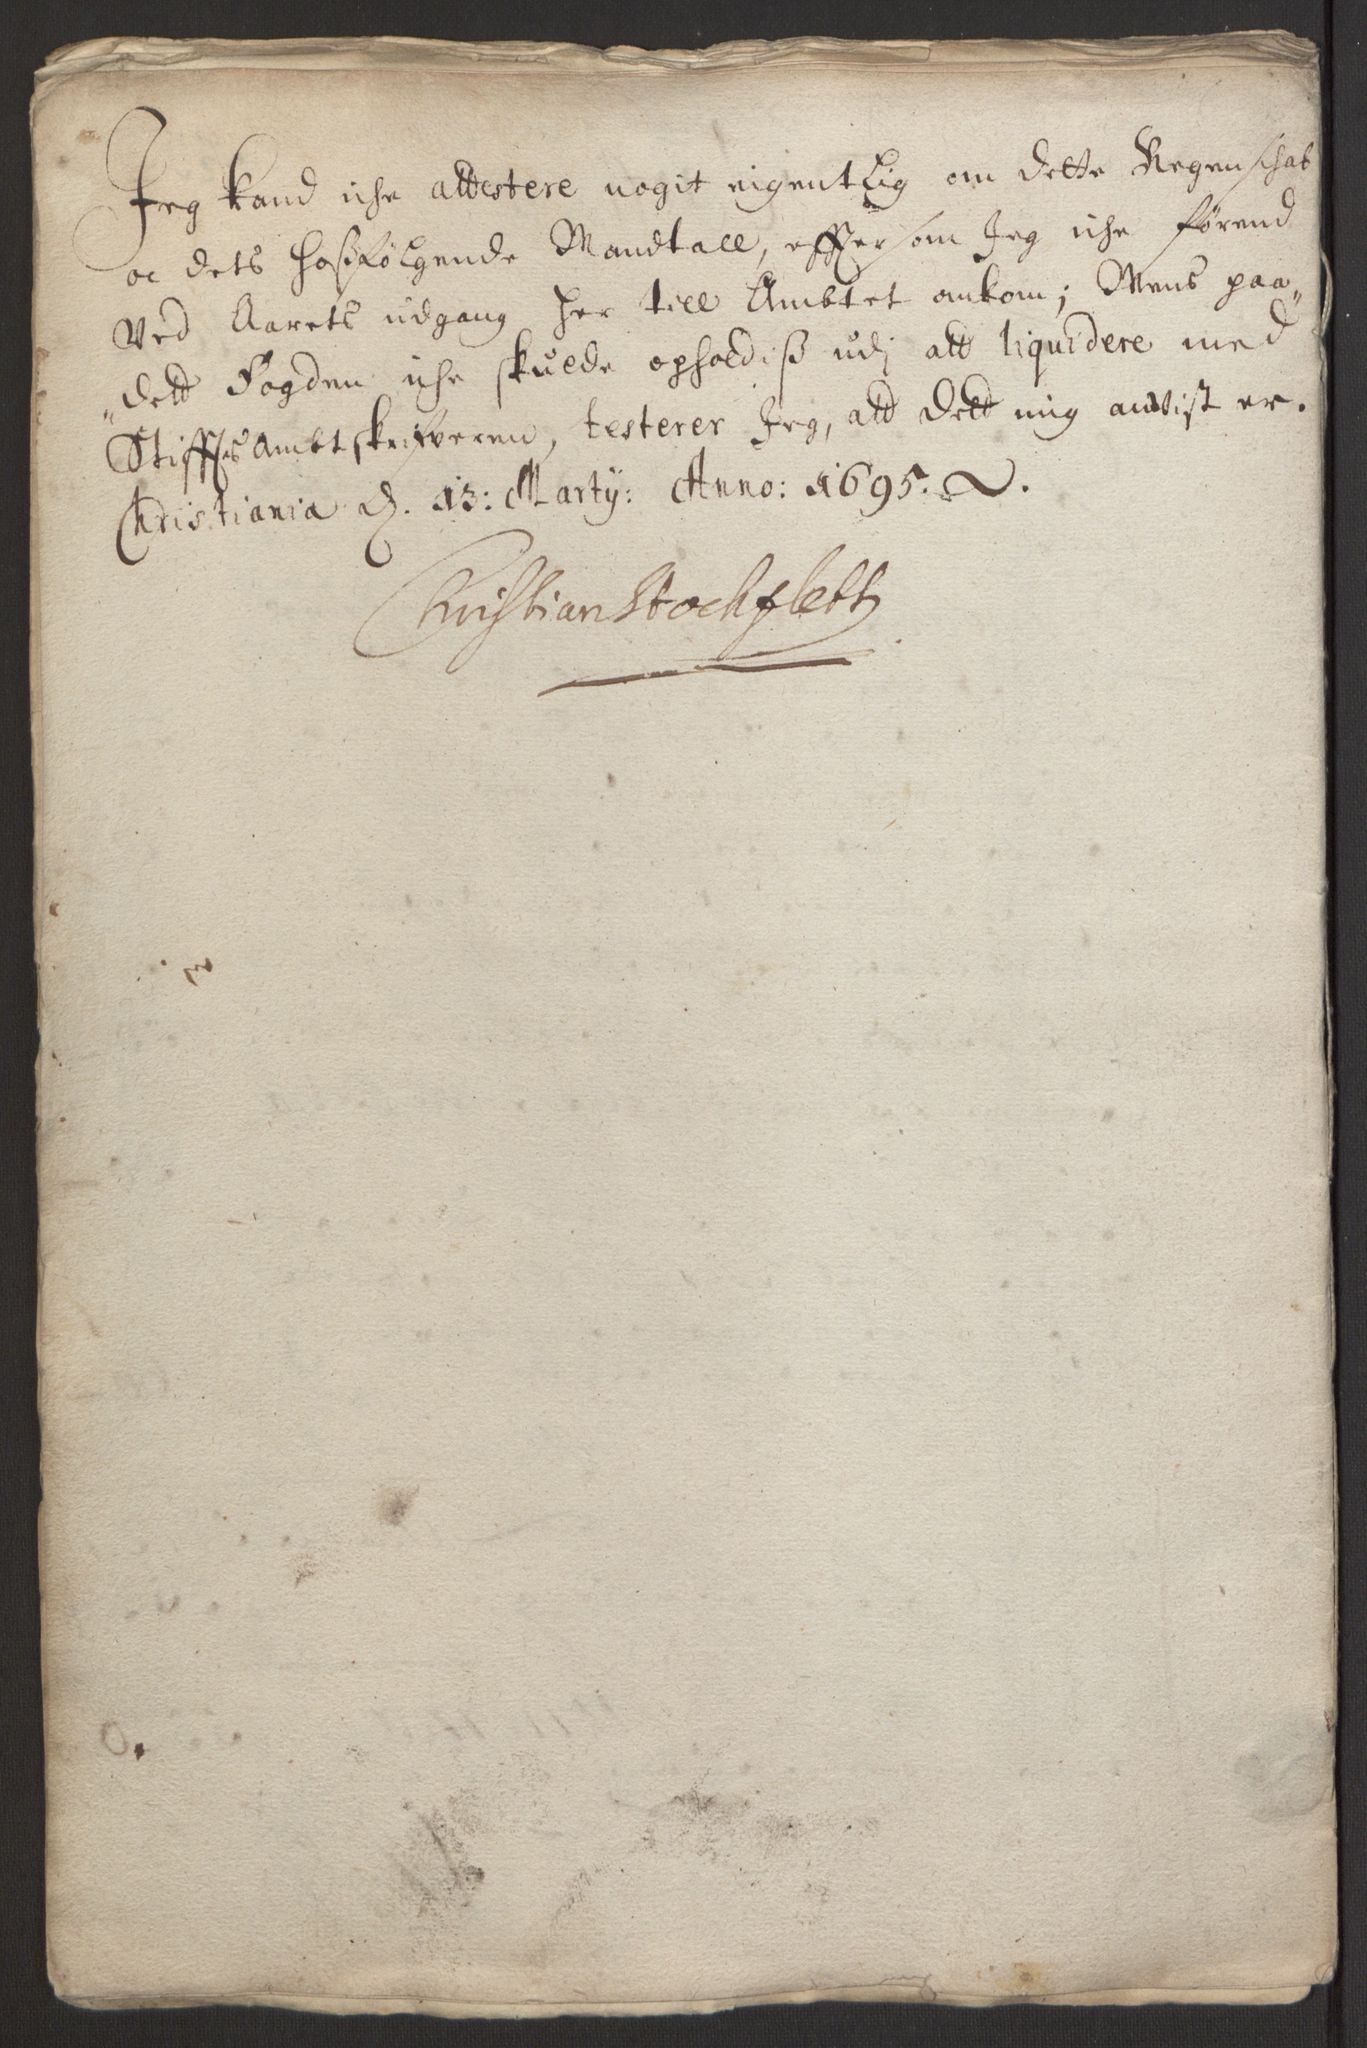 Jeg kand iche attestere nogit eigentlig om dette Regenschab
oc dets hoßfølgende Mandtall, efftersom Jeg iche førend
Ved Aarets udgang her till Ambtet ankom; Mens paa„
„dett Fogden iche skulde opholdiß udj att liquidere med
Stifftsambtskrifveren, testerer Jeg, att dett mig anvist er.
Christiania d. 13: Martij: Anno: 1695.
Christian Stochflett